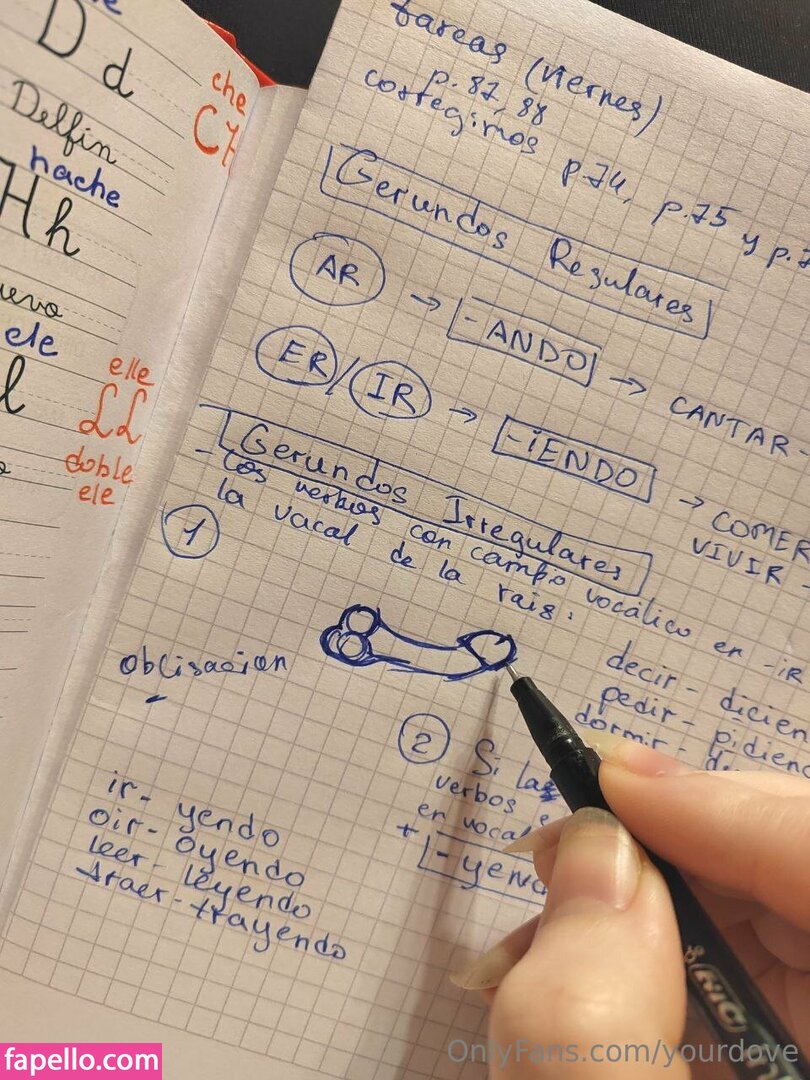 D d
Delfín
hache
Hh
ele
l
che
elle
LL
doble
ele
tareas (viernes)
p. 87, 88
corregimos p.74, p.75 y p.7
Gerundos Regulares
AR → -ANDO → CANTAR-
ER / IR → -iENDO → COMER
VIVIR
Gerundos Irregulares
1
- Los verbos con campio vocálico en -iR
la vacal de la raiz:
decir - dicien
pedir - pidienc
dormir - d
obligacion
2 Si las
verbos e
en vocal
+ -yend
ir - yendo
oir - oyendo
leer - leyendo
traer - trayendo
BIC
fapello.com
OnlyFans.com/yourdove